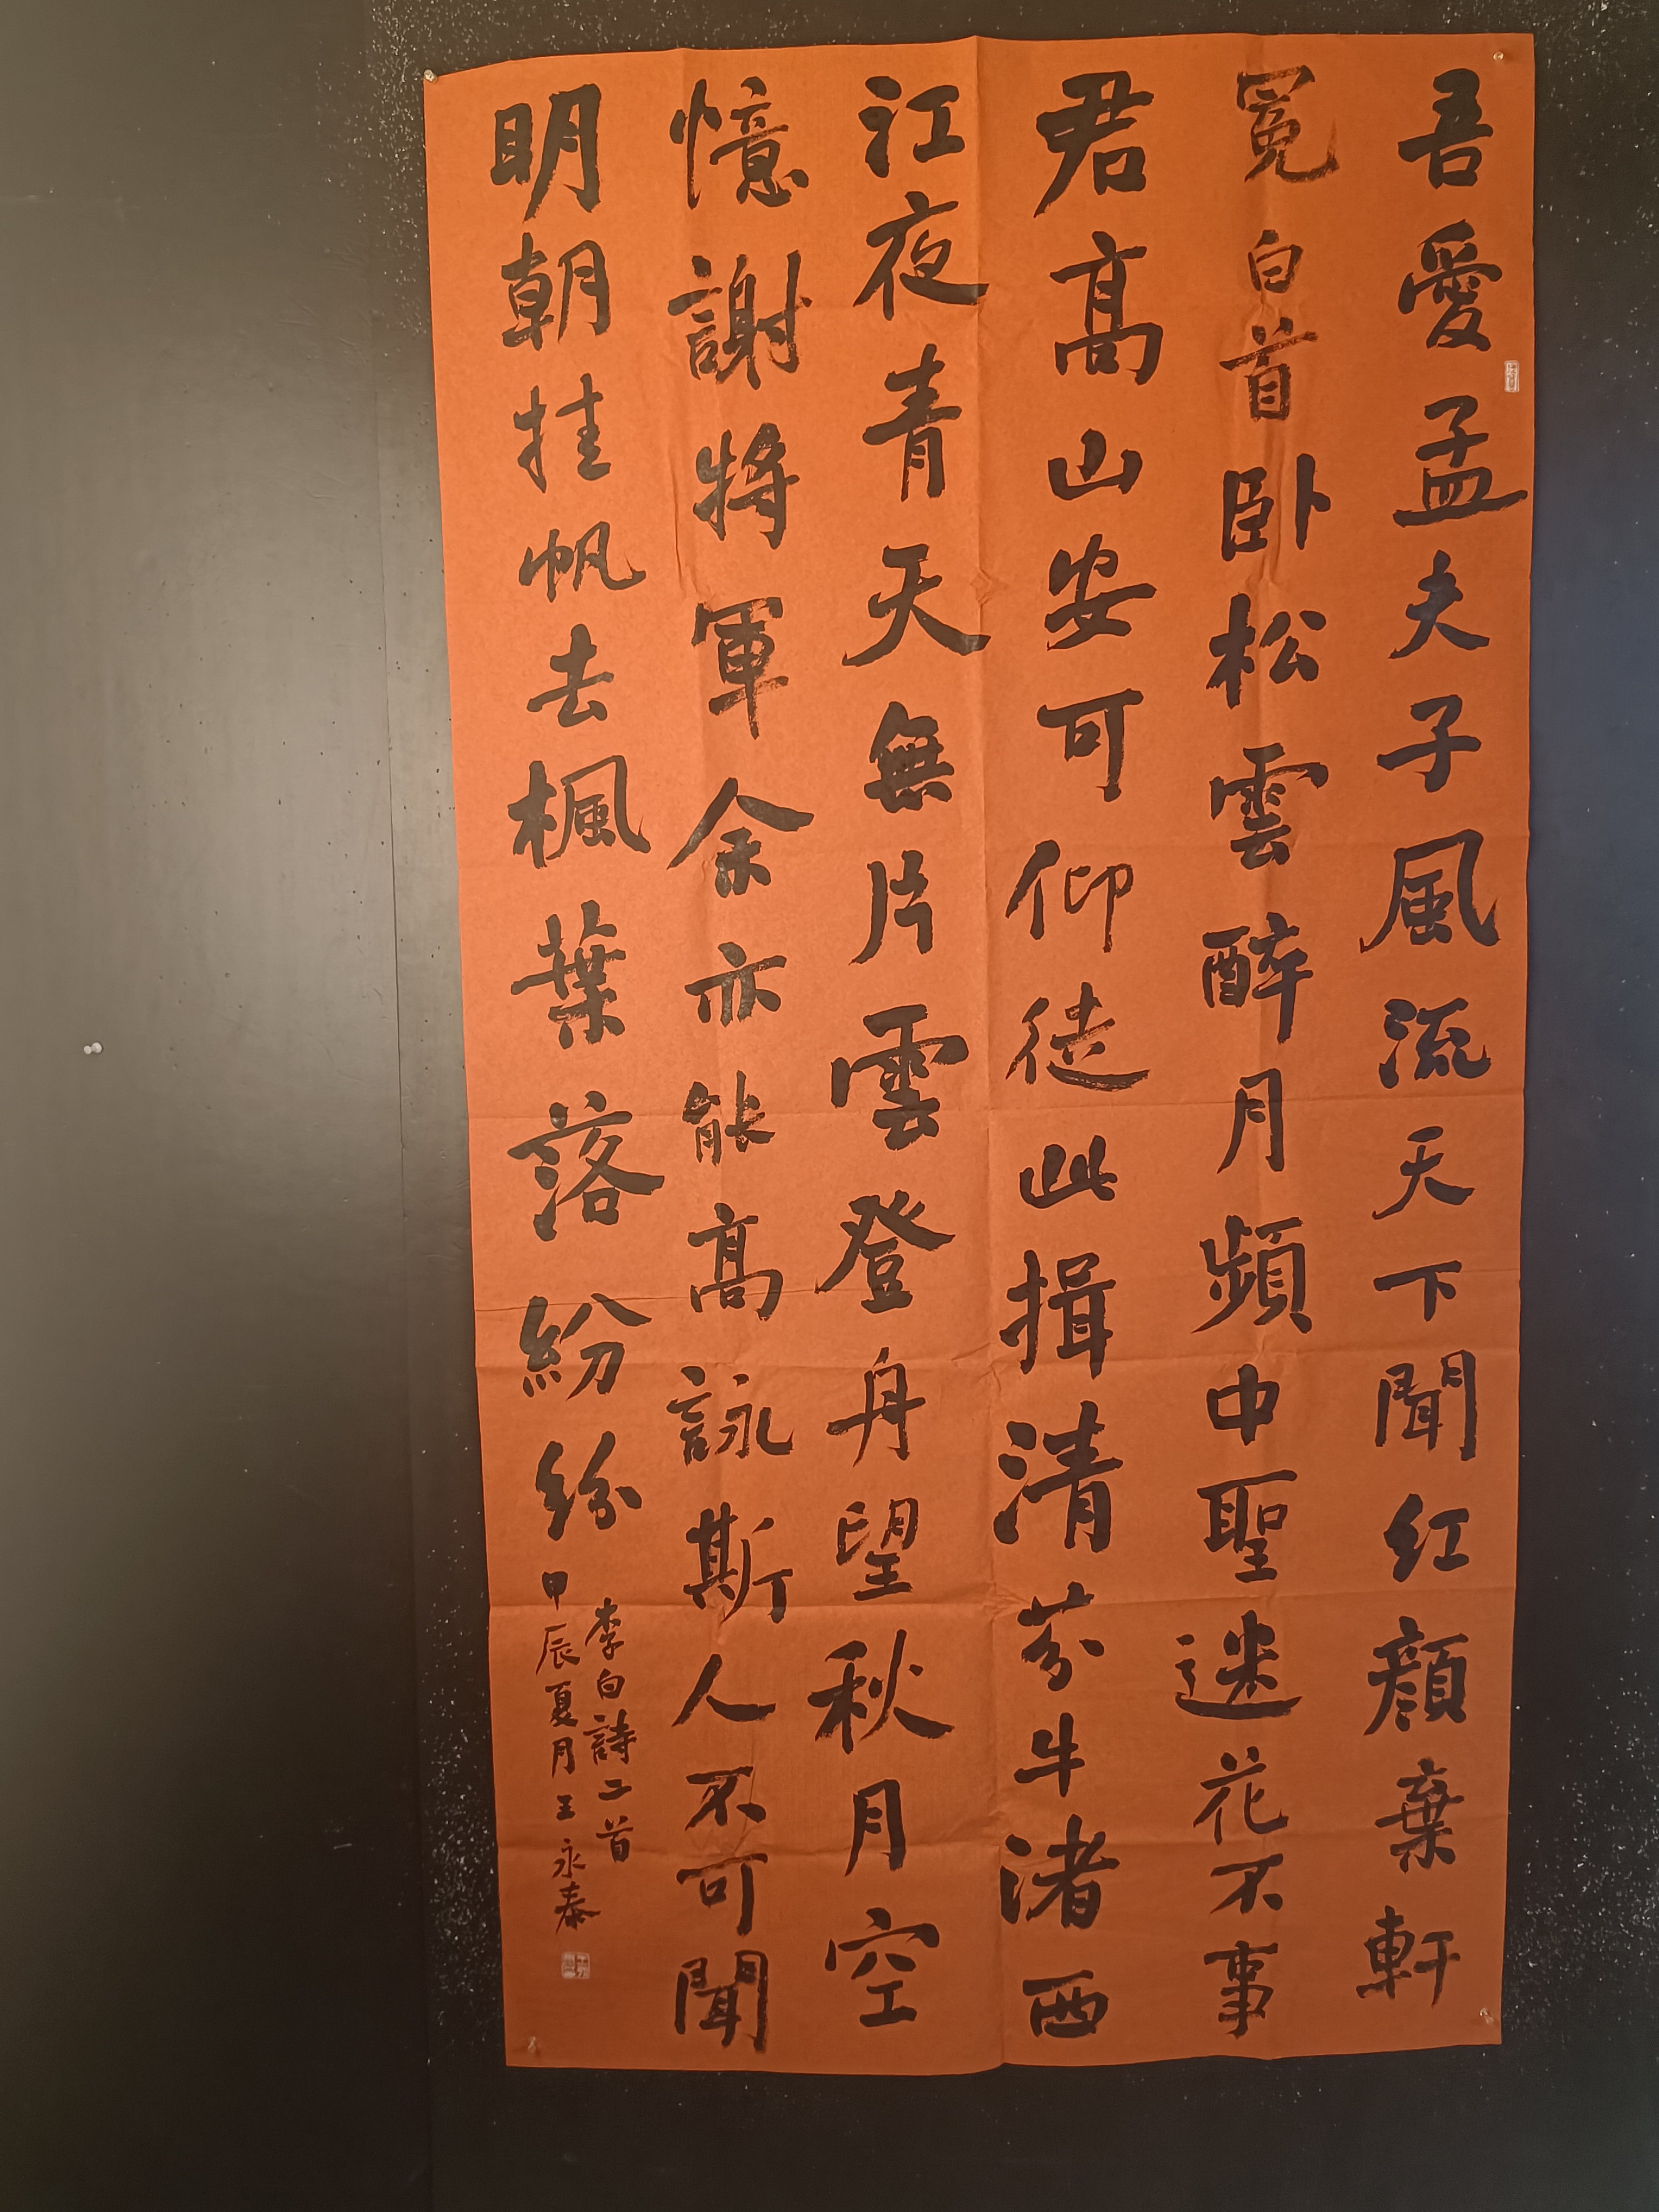 吾愛孟夫子風流天下聞红顔棄軒
冕白首卧松雲醉月頻中聖迷花不事
君高山安可仰徒此揖清芬牛渚西
江夜青天無片雲登舟望秋月空
憶謝將軍余亦能高詠斯人不可聞
明朝挂帆去楓葉落紛紛
李白詩二首
甲辰夏月王永泰